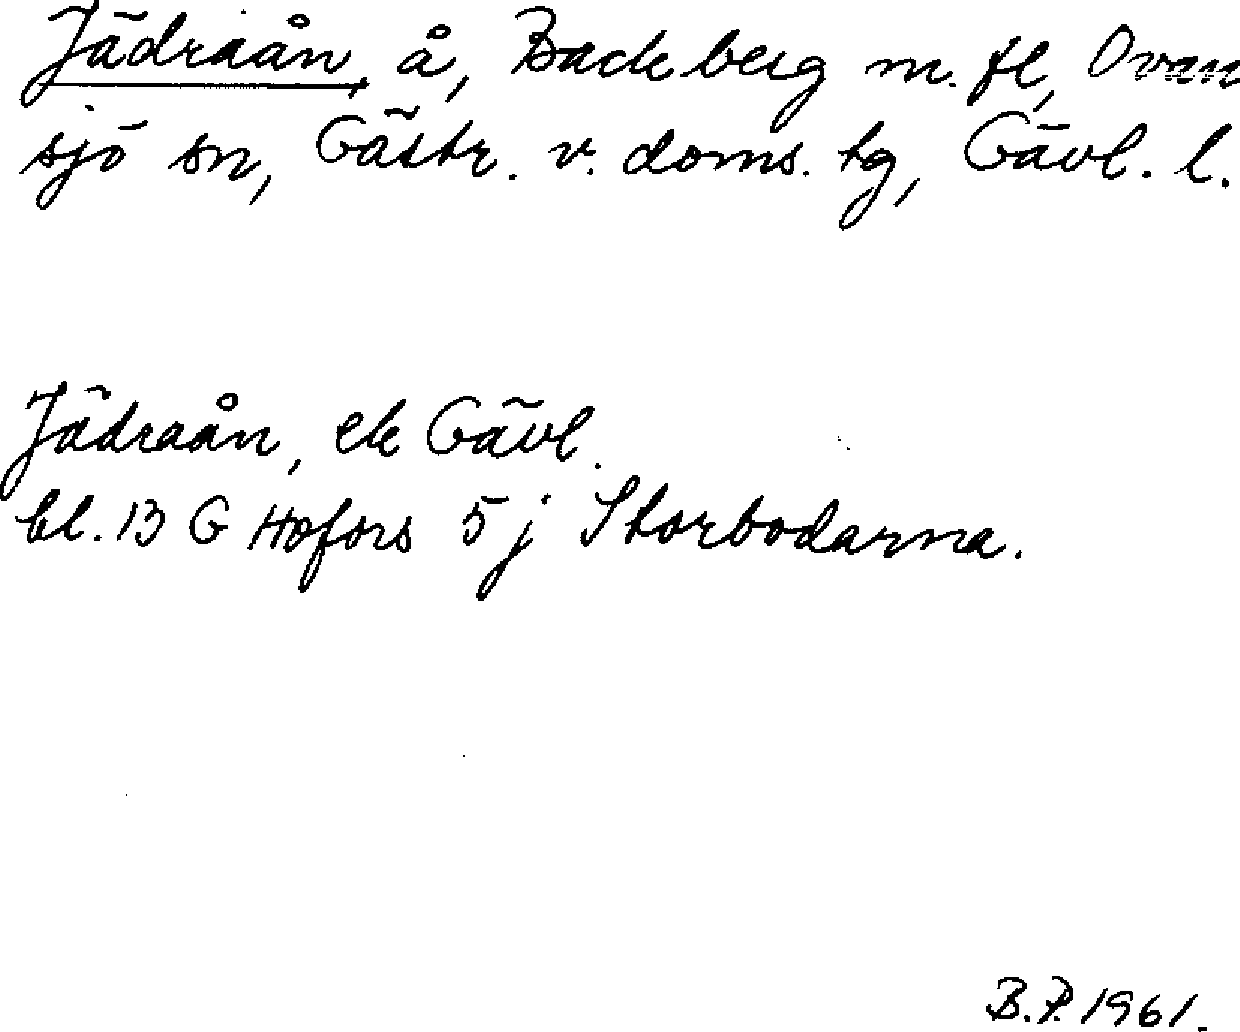 Jädraån, å, Backberg m. fl, Ovan
sjö sn, Gästr. v. doms. tg, Gävl. l.
Jädraån, ek Gävl.
bl. 13 G Hofors 5 j Storbodarna.
B.P. 1961.